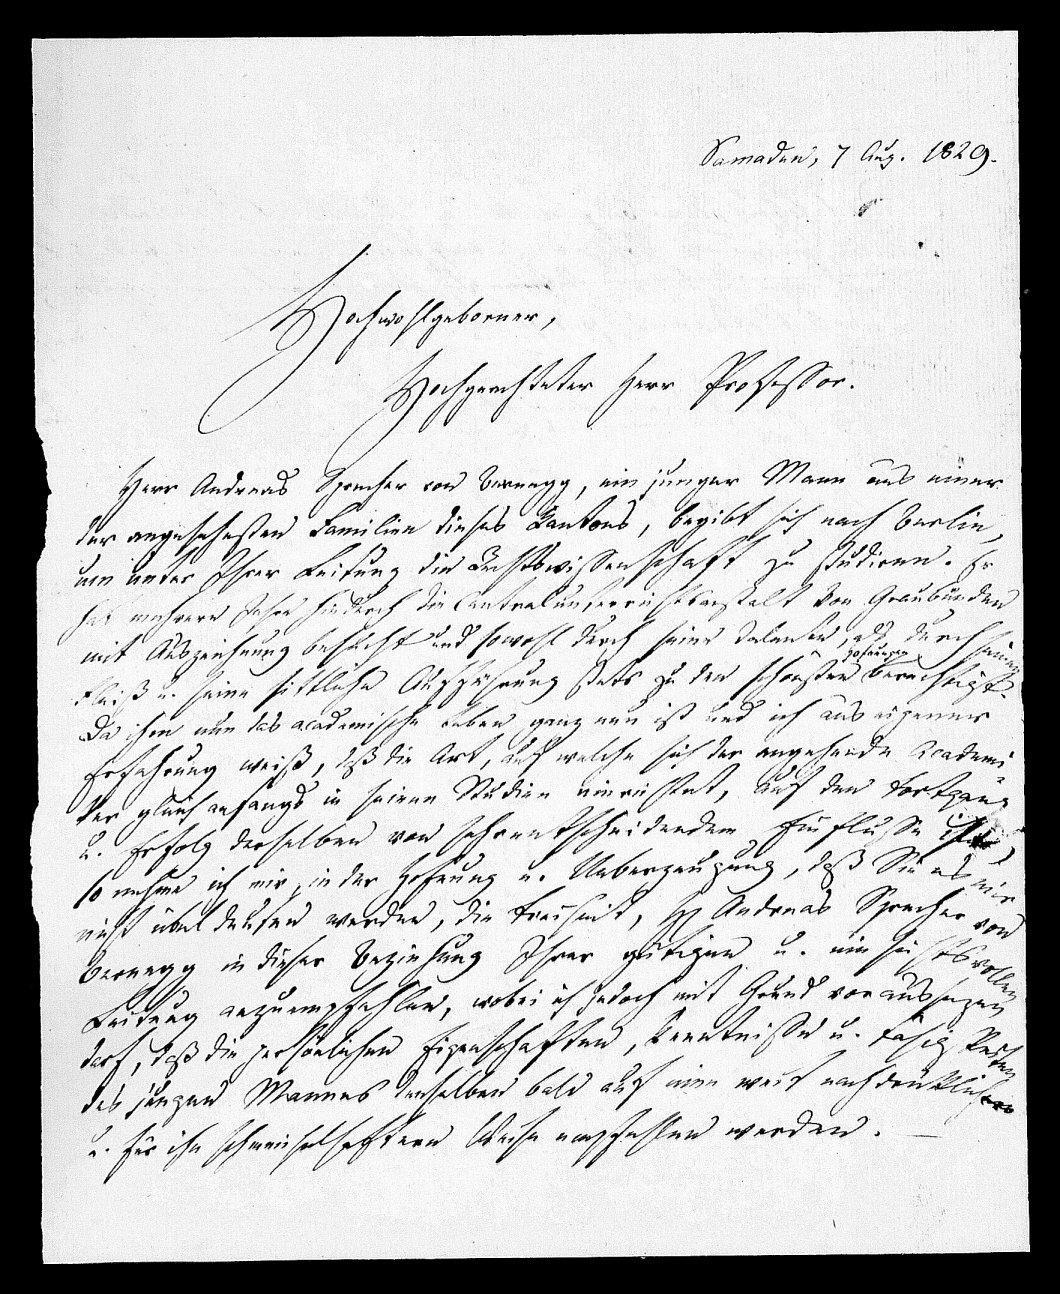 Samaden, 7 Aug. 1829.
Hochwohlgeborner,
Hochgeachteter Herr Professor.
Herr Andreas Sprecher von Bernegg, ein junger Mann aus einer
der angesehesten Familien dieses Kantons, begibt sich nach Berlin,
um unter Ihrer Leitung die Rechtswissenschaft zu studiren. Er
hat mehrere Jahre hindurch die Centralunterrichtsanstalt von Graubünden
mit Auszeichnung besucht und sowohl durch seine Talente, als durch seinen
Fleiß u. seine sittliche Aufführung stets zu den schönsten Hofnungen berechtigt.
Da ihm nun das academische Leben ganz neu ist und ich aus eigener
Erfahrung weiß, daß die Art, auf welche sich der angehende Academi-
ker gleich anfangs in seinen Studien einrichtet, auf den Fortgang
u. Erfolg derselben von sehr entscheidendem Einflusse ist,
so nehme ich mir, in der Hofnung u. Ueberzeugung, daß Sie es mir
nicht übel deuten werden, die Freiheit, H Andreas Sprecher von
Bernegg in dieser Beziehung Ihrer gütigen u. einsichtsvollen
Leitung anzuempfehlen, wobei ich jedoch mit Grund voraussezen
darf, daß die persönlichen Eigenschaften, Kenntnisse u. Fähigkeiten
des jungen Mannes denselben bald auf eine weit nachdrücklichere
u. für ihn schmeichelhaftere Weise empfehlen werden. —